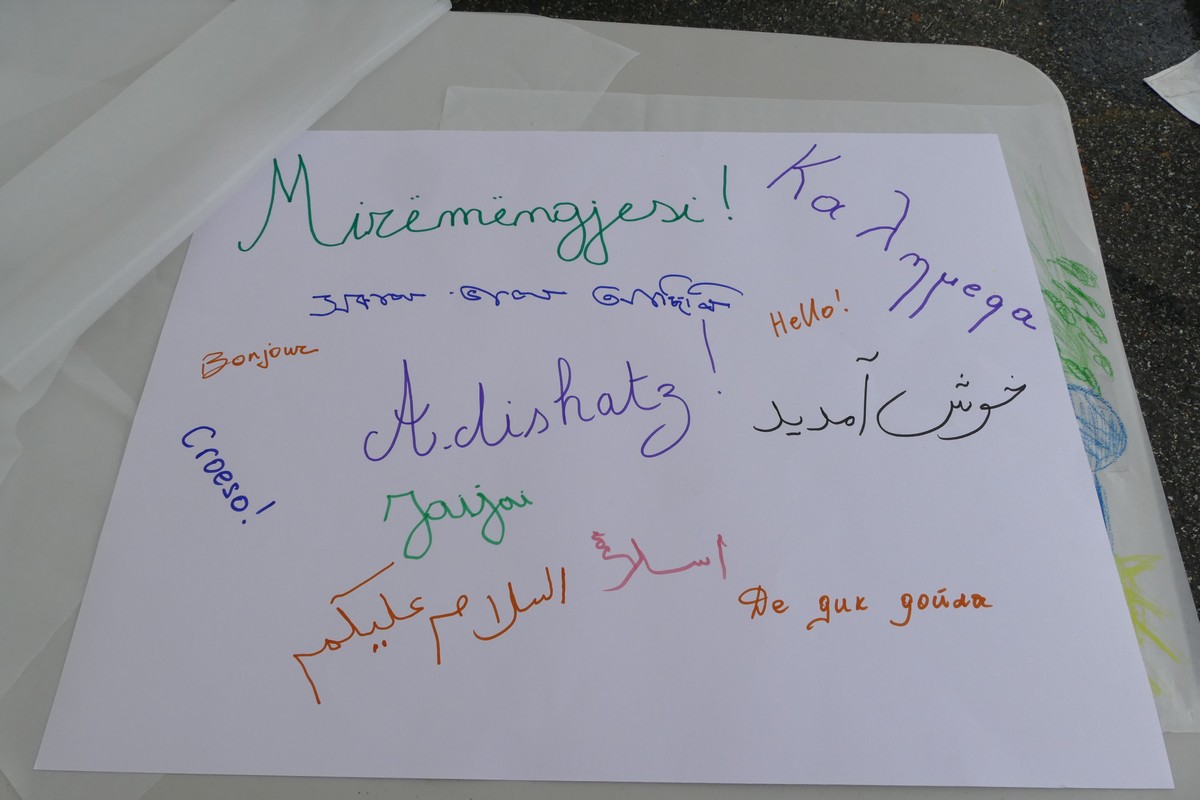 Mirëmëngjesi!
Καλημερα
Hello!
Bonjour
Adishatz!
خوش آمدید
Croeso!
Jaijai
السلام عليكم
Де дик дойла